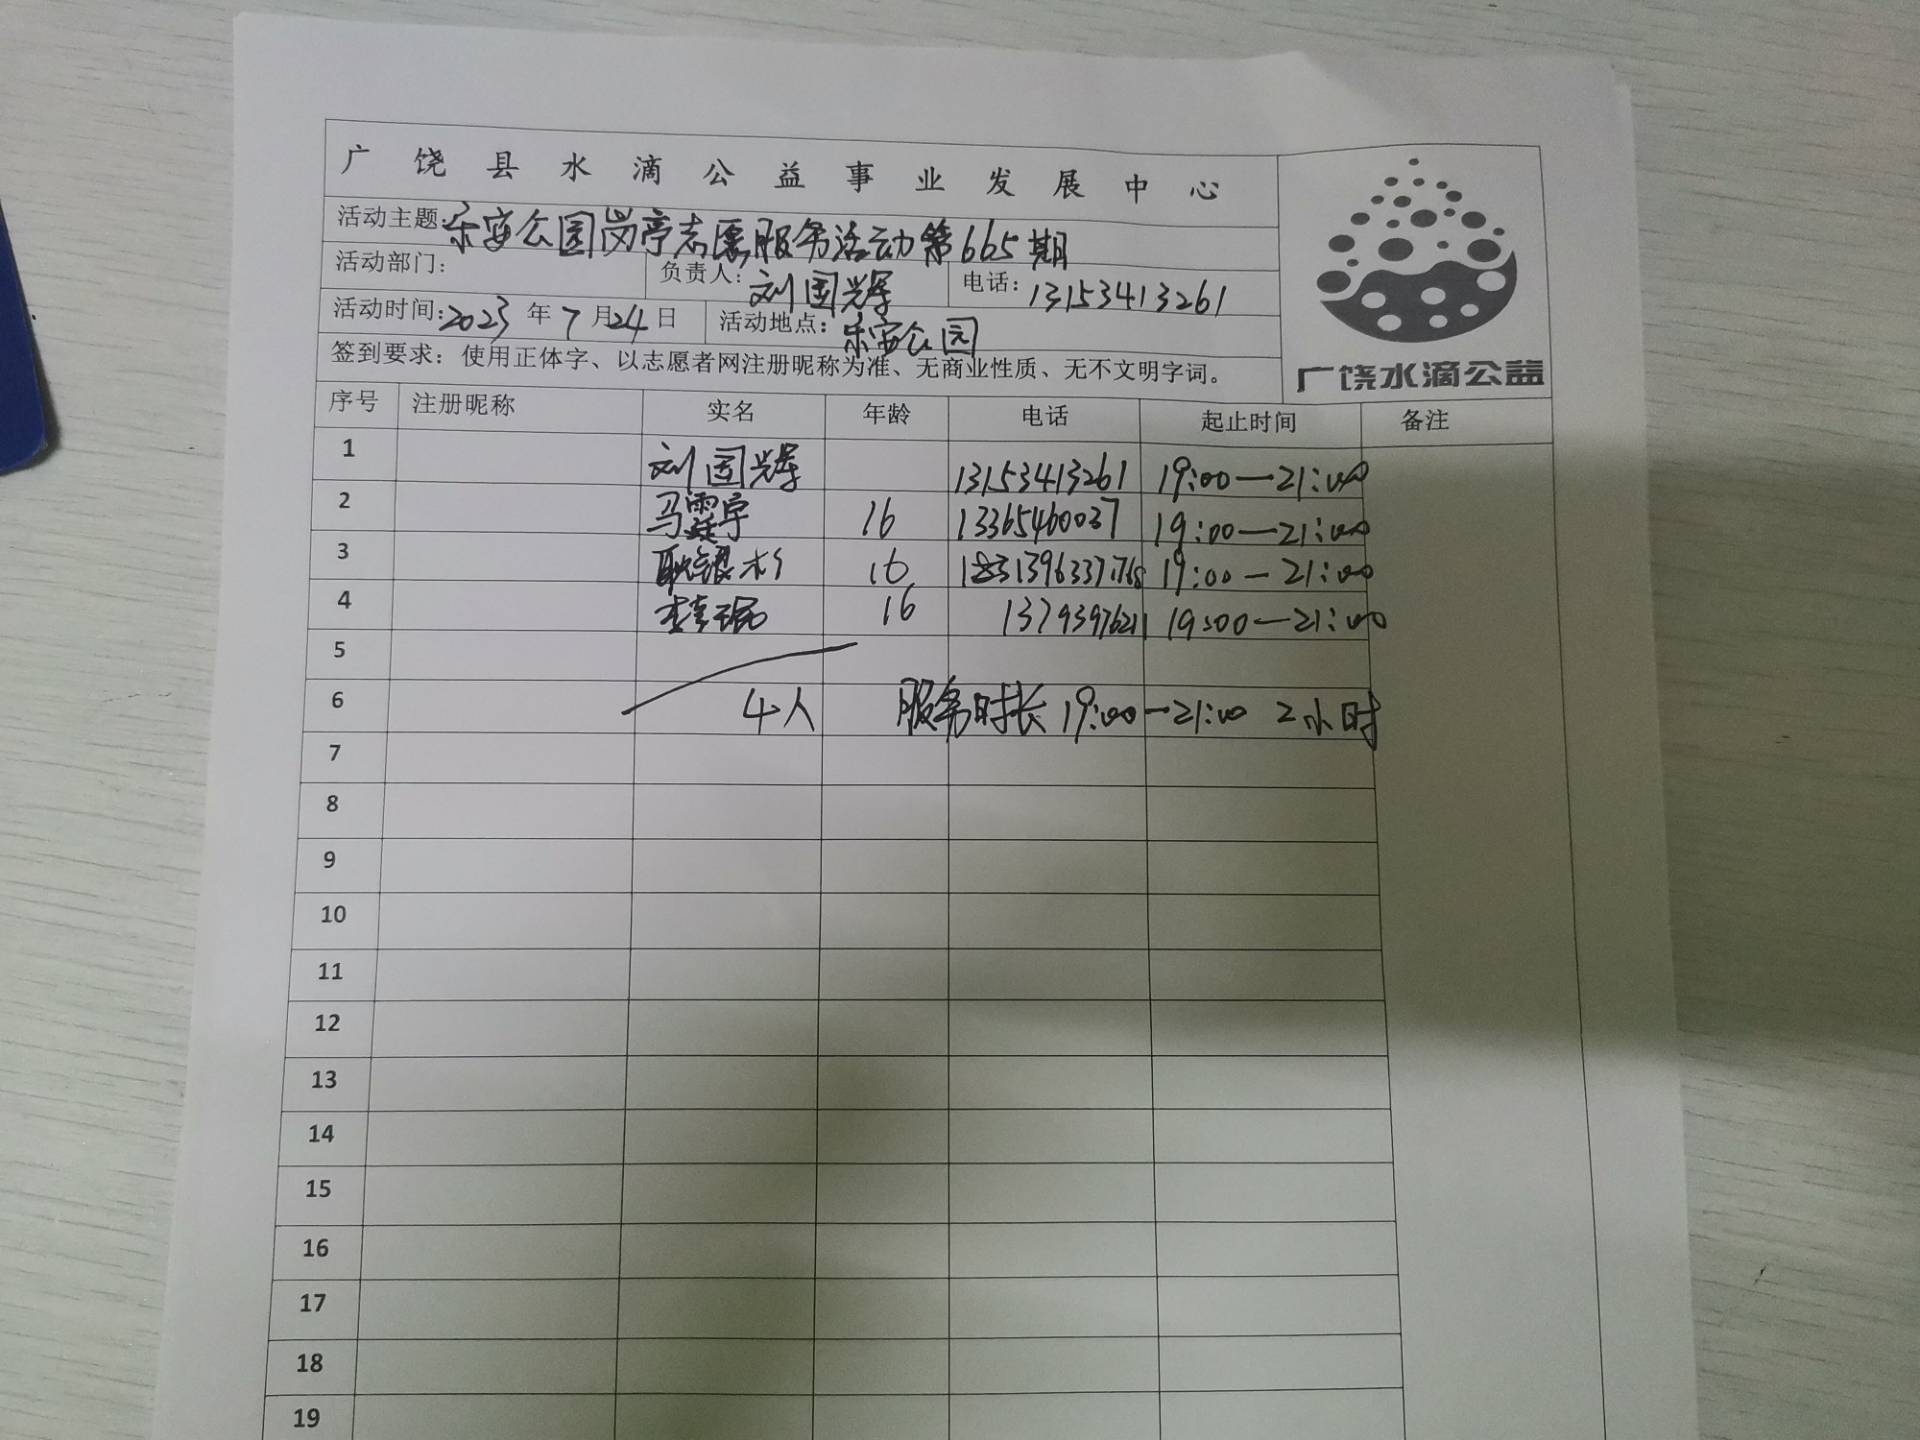 广饶县水滴公益事业发展中心
活动主题:乐安公园岗亭志愿服务活动第665期
活动部门: 负责人:刘国辉 电话:13153413261
活动时间:2023年7月24日 活动地点:乐安公园
签到要求：使用正体字、以志愿者网注册昵称为准、无商业性质、无不文明字词。
广饶水滴公益
序号 注册昵称 实名 年龄 电话 起止时间 备注
1 刘国辉 13153413261 19:00—21:00
2 马霆宇 16 13365460037 19:00—21:00
3 耿银杉 16 19:00—21:00
4 16 13793976211 19:00—21:00
5
6 4人 服务时长19:00—21:00 2小时
7
8
9
10
11
12
13
14
15
16
17
18
19